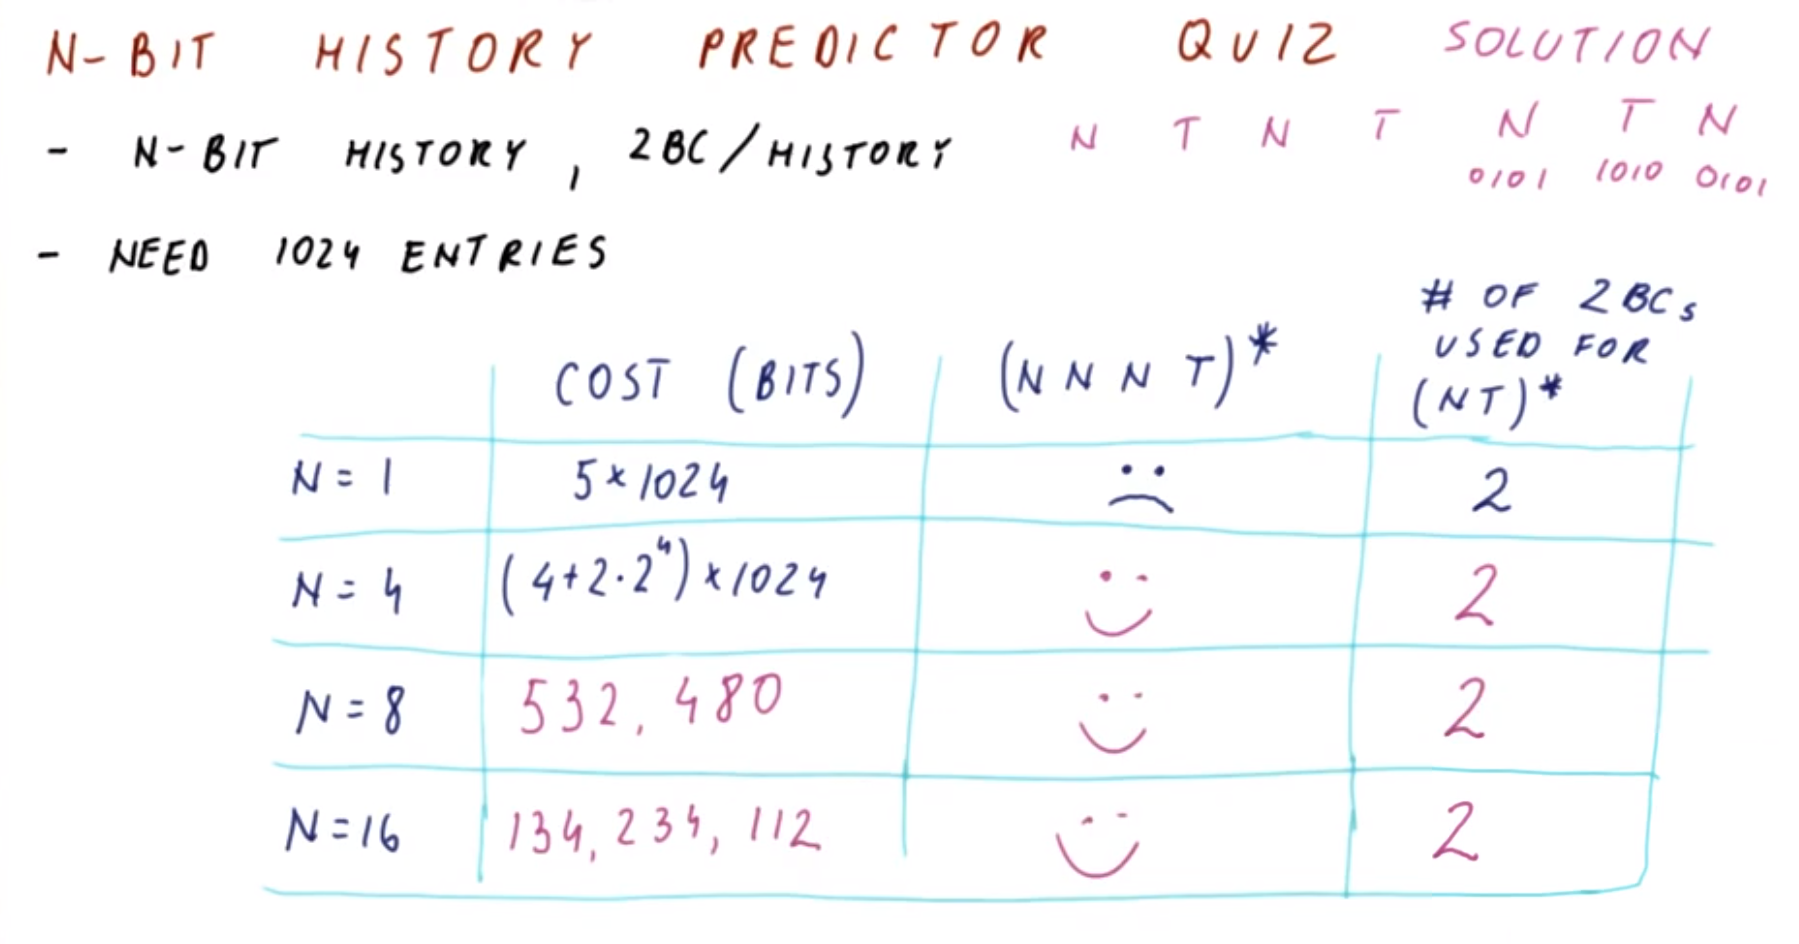 N-BIT HISTORY PREDICTOR QUIZ SOLUTION
- N-BIT HISTORY, 2BC/HISTORY N T N T N T N
0101 1010 0101
- NEED 1024 ENTRIES
COST (BITS) (N N N T)* # OF 2BCs USED FOR (NT)*
N=1 5×1024 2
N=4 (4+2·2⁴)×1024 2
N=8 532,480 2
N=16 134,234,112 2